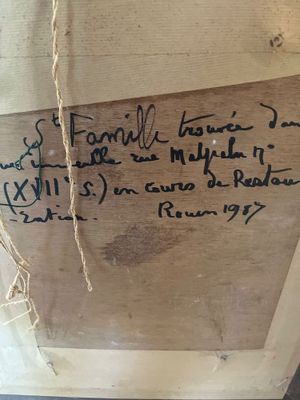 Ste Famille trouvée dan
immeuble rue Malpalu n°
(XVIIe s.) en cours de Restau
-ration. Rouen 1987